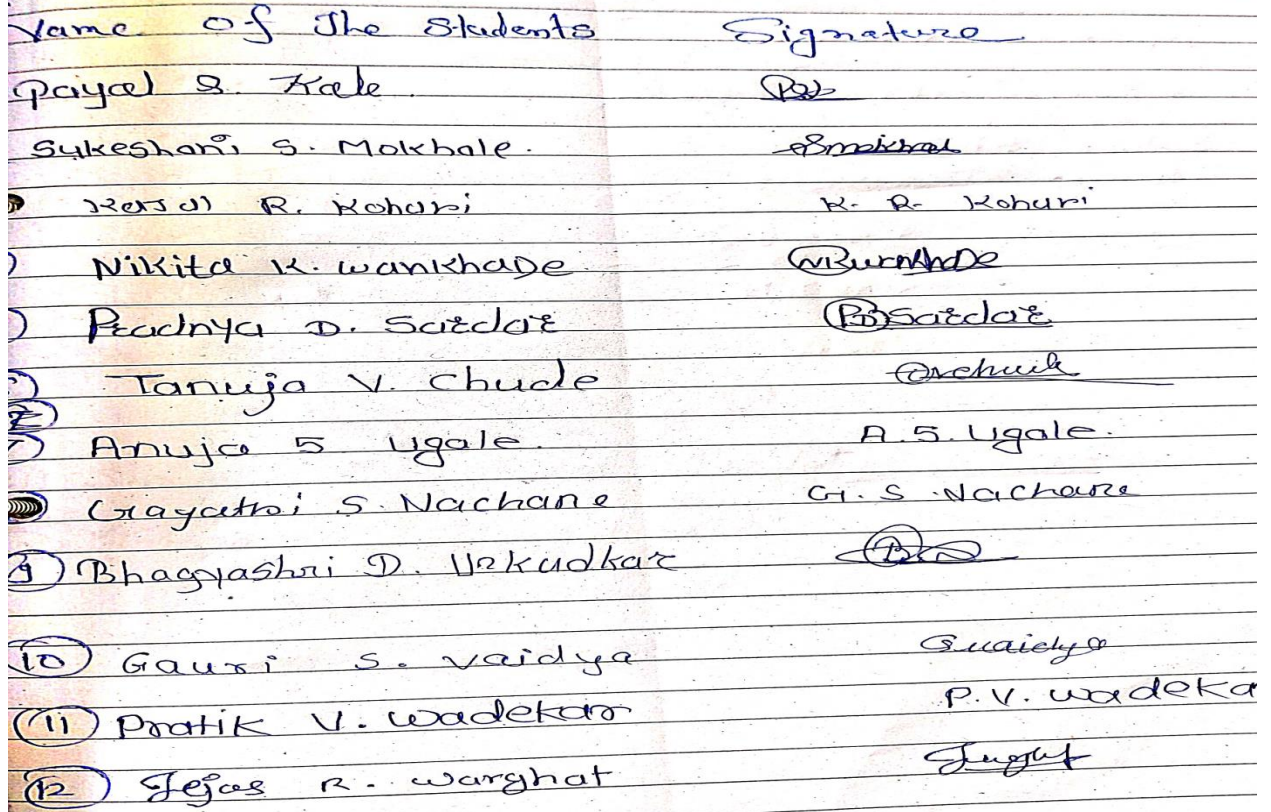 Name of The Students Signature
Payal S. Kale
Sukeshani S. Mokhale. SMokhale
R. Kohari K. R. Kohari
Nikita K. wankhaDe
Pradnya D. Sardar PDSardar
Tanuja V. Chude
Anuja S Ugale. A.S. Ugale.
Gayatri S. Nachane G. S. Nachane
9) Bhagyashri D. Urkudkar
10) Gauri S. Vaidya GVaidya
11) Pratik V. Wadekar P.V. Wadeka
12) Tejas R. Warghat